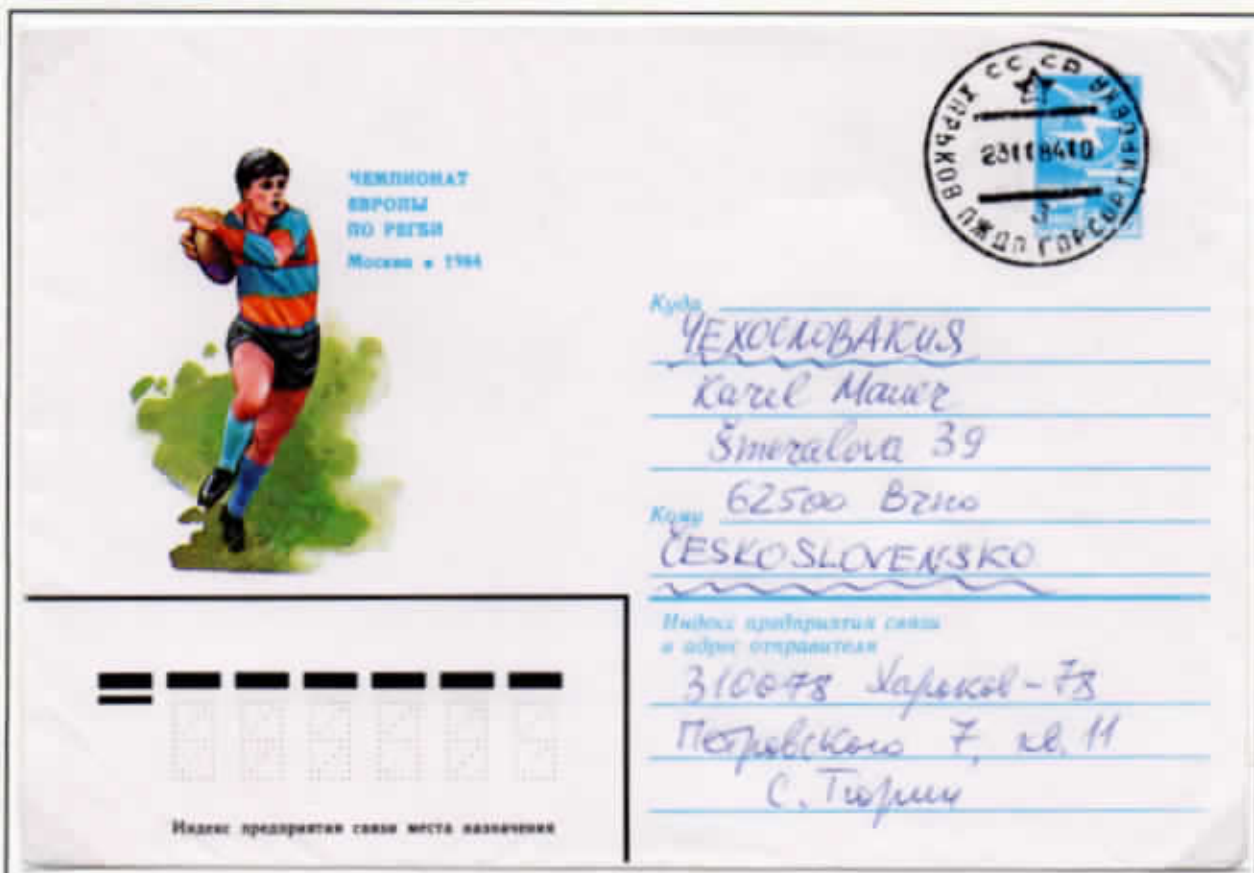 ЧЕМПИОНАТ
ЕВРОПЫ
ПО РЕГБИ
Москва • 1984
ХАРЬКОВ СССР
23 11 84 10
ПЖДП
Куда
ЧЕХОСЛОВАКИЯ
Karel Mauer
Šmeralova 39
62500 Brno
Кому
ČESKOSLOVENSKO
Индекс предприятия связи
и адрес отправителя
310078 Харьков-78
Петровского 7, кв. 11
С. Тюрин
Индекс предприятия связи места назначения